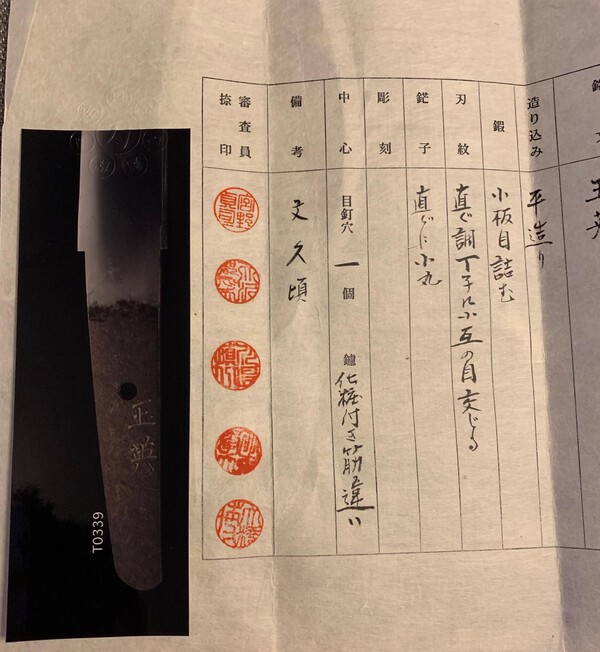 玉英
造り込み 平造り
鍜 小板目詰む
刃紋 直ぐ調丁子に小互の目交じる
鋩子 直ぐに小丸
彫刻
中心 目釘穴 一 個 鑢 化粧付き筋違い
備考 文久頃
審査員
捺印
玉英
T0339